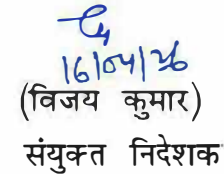 16/04/26
(विजय कुमार)
संयुक्त निदेशक